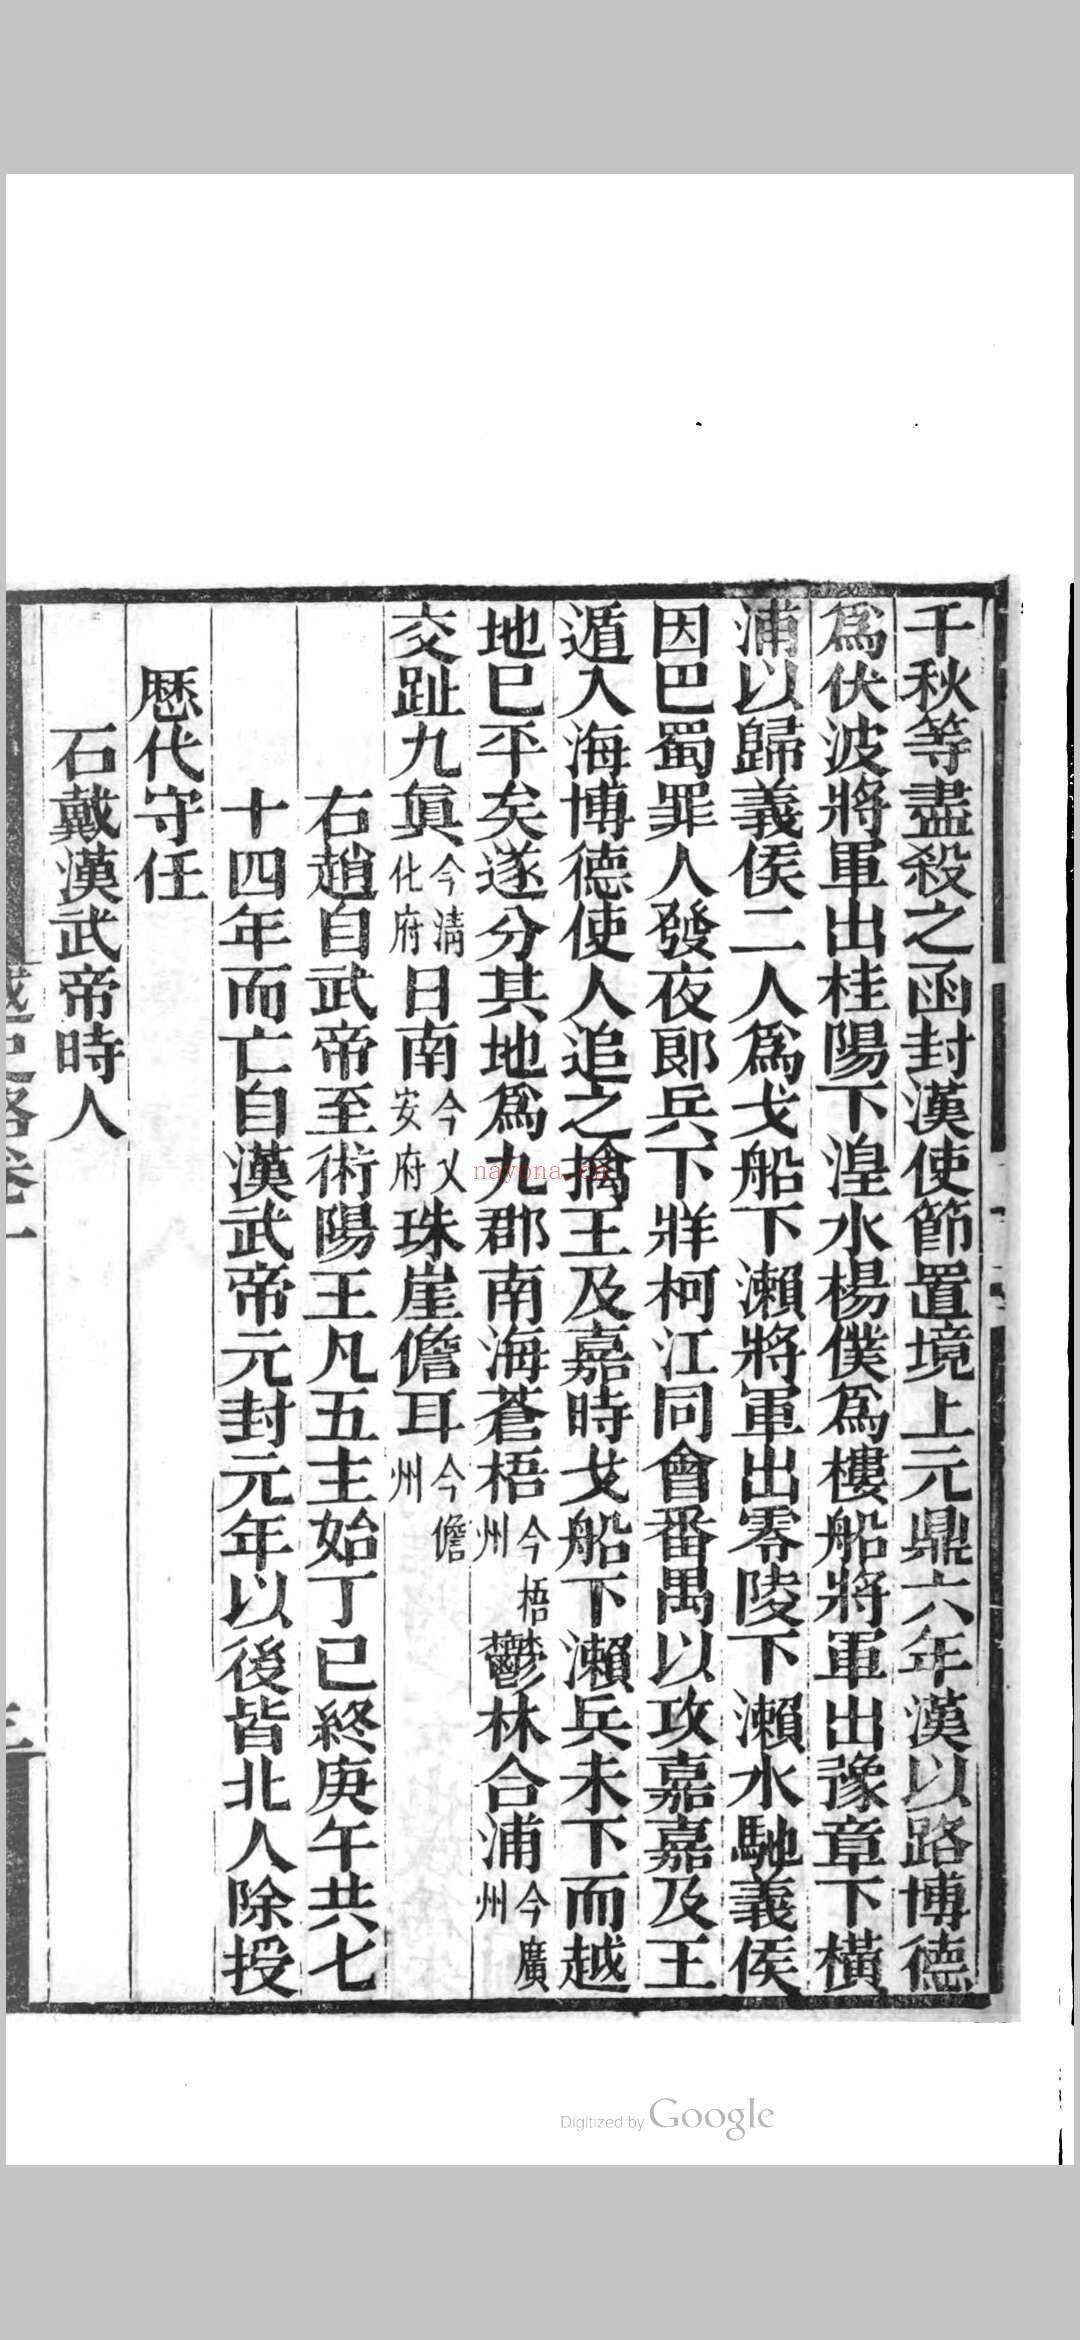 千秋等盡殺之函封漢使節置境上元鼎六年漢以路博德
爲伏波將軍出桂陽下湟水楊僕爲樓船將軍出豫章下橫
浦以歸義侯二人爲戈船下瀨將軍出零陵下瀨水馳義侯
因巴蜀罪人發夜郎兵下牂柯江同會番禺以攻嘉嘉及王
遁入海博德使人追之擒王及嘉時戈船下瀨兵未下而越
地巳平矣遂分其地爲九郡南海蒼梧今梧州鬱林合浦今廣州
交趾九眞今淸化府日南今乂安府珠崖儋耳今儋州
右趙自武帝至術陽王凡五主始丁巳終庚午共七
十四年而亡自漢武帝元封元年以後皆北人除授
歷代守任
石戴漢武帝時人
越史略卷一
三
nayona.cn
Digitized by Google